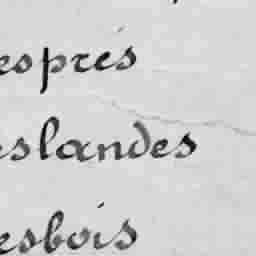 esprés
eslandes
esbois